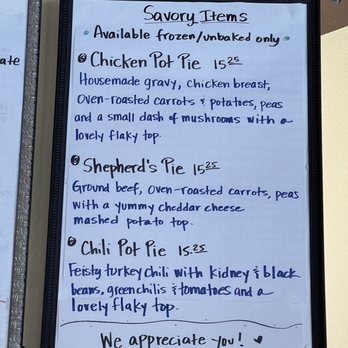 Savory Items
Available frozen/unbaked only
Chicken Pot Pie 15.25
Housemade gravy, chicken breast,
oven-roasted carrots & potatoes, peas
and a small dash of mushrooms with a
lovely flaky top.
Shepherd's Pie 15.25
Ground beef, oven-roasted carrots, peas
with a yummy cheddar cheese
mashed potato top.
Chili Pot Pie 15.25
Feisty turkey chili with kidney & black
beans, green chilis & tomatoes and a
lovely flaky top.
We appreciate you!
ate